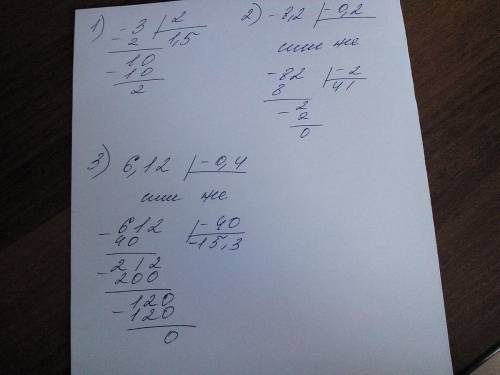 1) -3 |2
-2 1,5
10
-10
2
2) -8,2 |-0,2
или же
-82 |-2
8 41
-2
2
0
3) 6,12 |-0,4
или же
-612 |-40
40 -15,3
-212
200
-120
120
0